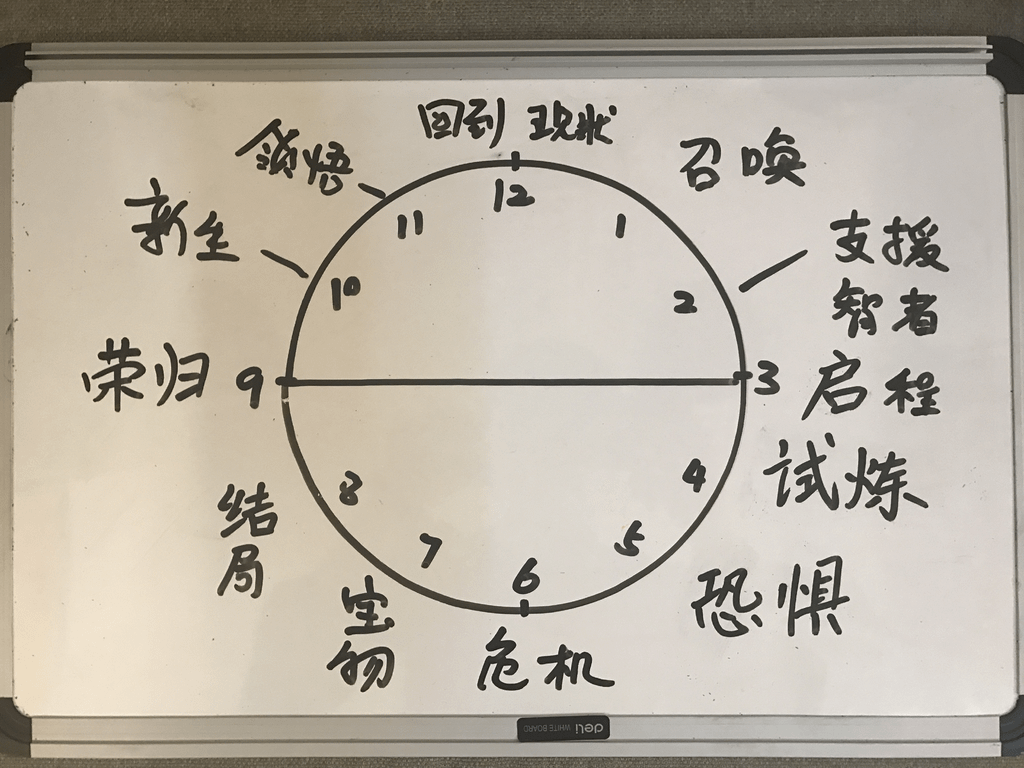 回到 现状
12
召唤
1
支援
智者
2
3
启程
试炼
4
恐惧
5
6
危机
7
宝
物
8
结
局
9
荣归
10
新生
11
领悟
deli WHITE BOARD